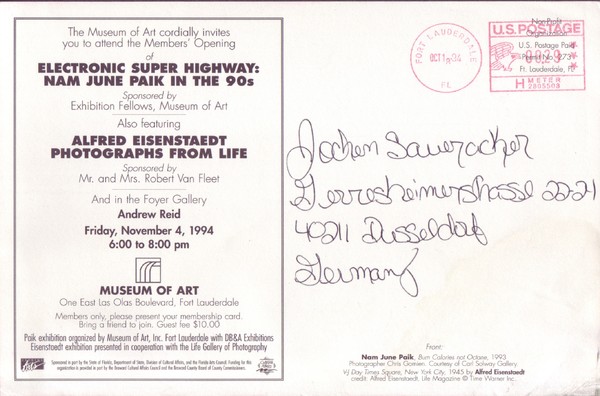 The Museum of Art cordially invites
you to attend the Members' Opening
of
ELECTRONIC SUPER HIGHWAY:
NAM JUNE PAIK IN THE 90s
Sponsored by
Exhibition Fellows, Museum of Art
Also featuring
ALFRED EISENSTAEDT
PHOTOGRAPHS FROM LIFE
Sponsored by
Mr. and Mrs. Robert Van Fleet
And in the Foyer Gallery
Andrew Reid
Friday, November 4, 1994
6:00 to 8:00 pm
MUSEUM OF ART
One East Las Olas Boulevard, Fort Lauderdale
Members only, please present your membership card.
Bring a friend to join. Guest fee $10.00
Paik exhibition organized by Museum of Art, Inc. Fort Lauderdale with DB&A Exhibitions
Eisenstaedt exhibition presented in cooperation with the Life Gallery of Photography
Sponsored in part by the State of Florida, Department of State, Division of Cultural Affairs, and the Florida Arts Council. Funding for this
organization is provided in part by the Broward Cultural Affairs Council and the Broward County Board of County Commissioners.
FORT LAUDERDALE
OCT
FL
U.S. POSTAGE
Non-Profit
Organization
U.S. Postage Paid
Ft. Lauderdale, FL
H METER
Jochen Saueracker
Gerresheimerstrasse 22-21
40211 Dusseldorf
Germany
Front:
Nam June Paik, Burn Calories not Octane, 1993
Photographer Chris Gomien. Courtesy of Carl Solway Gallery.
VJ Day Times Square, New York City, 1945 by Alfred Eisenstaedt
credit: Alfred Eisenstaedt, Life Magazine © Time Warner Inc.